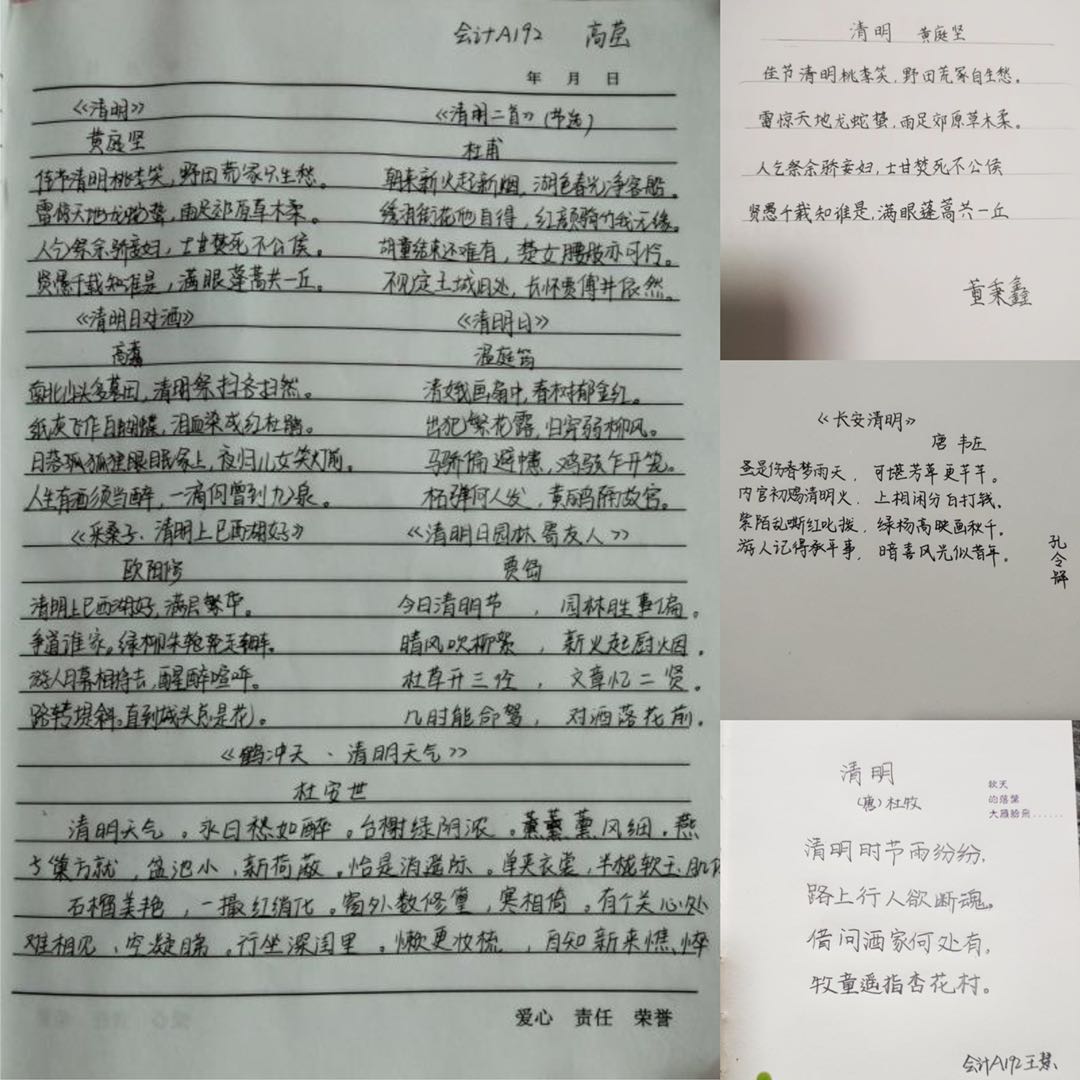 会计A192 高莹
年 月 日
《清明》
黄庭坚
佳节清明桃李笑,野田荒冢只生愁。
雷惊天地龙蛇蛰,雨足郊原草木柔。
人乞祭余骄妾妇,士甘焚死不公侯。
贤愚千载知谁是,满眼蓬蒿共一丘。
《清明二首》(节选)
杜甫
朝来新火起新烟,湖色春光净客船。
绣消衔花他自得,红颜骑竹我无缘。
胡童结束还难有,楚女腰肢亦可怜。
不见定王城旧处,长怀贾傅井依然。
《清明日对酒》
高翥
南北山头多墓田,清明祭扫各扫然。
纸灰飞作白蝴蝶,泪血染成红杜鹃。
日落狐狸眠冢上,夜归儿女笑灯前。
人生有酒须当醉,一滴何曾到九泉。
《清明日》
温庭筠
清娥画扇中,春树郁金红。
出犯繁花露,归穿弱柳风。
马骄偏避幰,鸡骇乍开笼。
柘弹何人发,黄鹂隔故宫。
《采桑子·清明上巳西湖好》
欧阳修
清明上巳西湖好,满目繁华。
争道谁家。绿柳朱轮走钿车。
游人日暮相将去,醒醉喧哗。
路转堤斜。直到城头总是花。
《清明日园林寄友人》
贾岛
今日清明节,园林胜事偏。
晴风吹柳絮,新火起厨烟。
杜草开三径,文章忆二贤。
几时能命驾,对酒落花前。
《鹤冲天·清明天气》
杜安世
清明天气。永日愁如醉。台榭绿阴浓。薰风细。燕
子巢方就,盆池小,新荷蔽。恰是逍遥际。单夹衣裳,半栊软玉
石榴美艳,一撮红绡比。窗外数修篁,寒相倚。有个关心处
难相见、空凝睇。行坐深闺里。懒更妆梳,自知新来憔悴
爱心 责任 荣誉
清明 黄庭坚
佳节清明桃李笑,野田荒冢自生愁。
雷惊天地龙蛇蛰,雨足郊原草木柔。
人乞祭余骄妾妇,士甘焚死不公侯
贤愚千载知谁是,满眼蓬蒿共一丘
董秉鑫
《长安清明》
唐 韦庄
蚤是伤春梦雨天,可堪芳草更芊芊。
内官初赐清明火,上相闲分白打钱。
紫陌乱嘶红叱拨,绿杨高映画秋千。
游人记得承平事,暗喜风光似昔年。
孔令
清明
(唐)杜牧
秋天
的落叶
大雁
清明时节雨纷纷,
路上行人欲断魂。
借问酒家何处有,
牧童遥指杏花村。
会计A192王慧